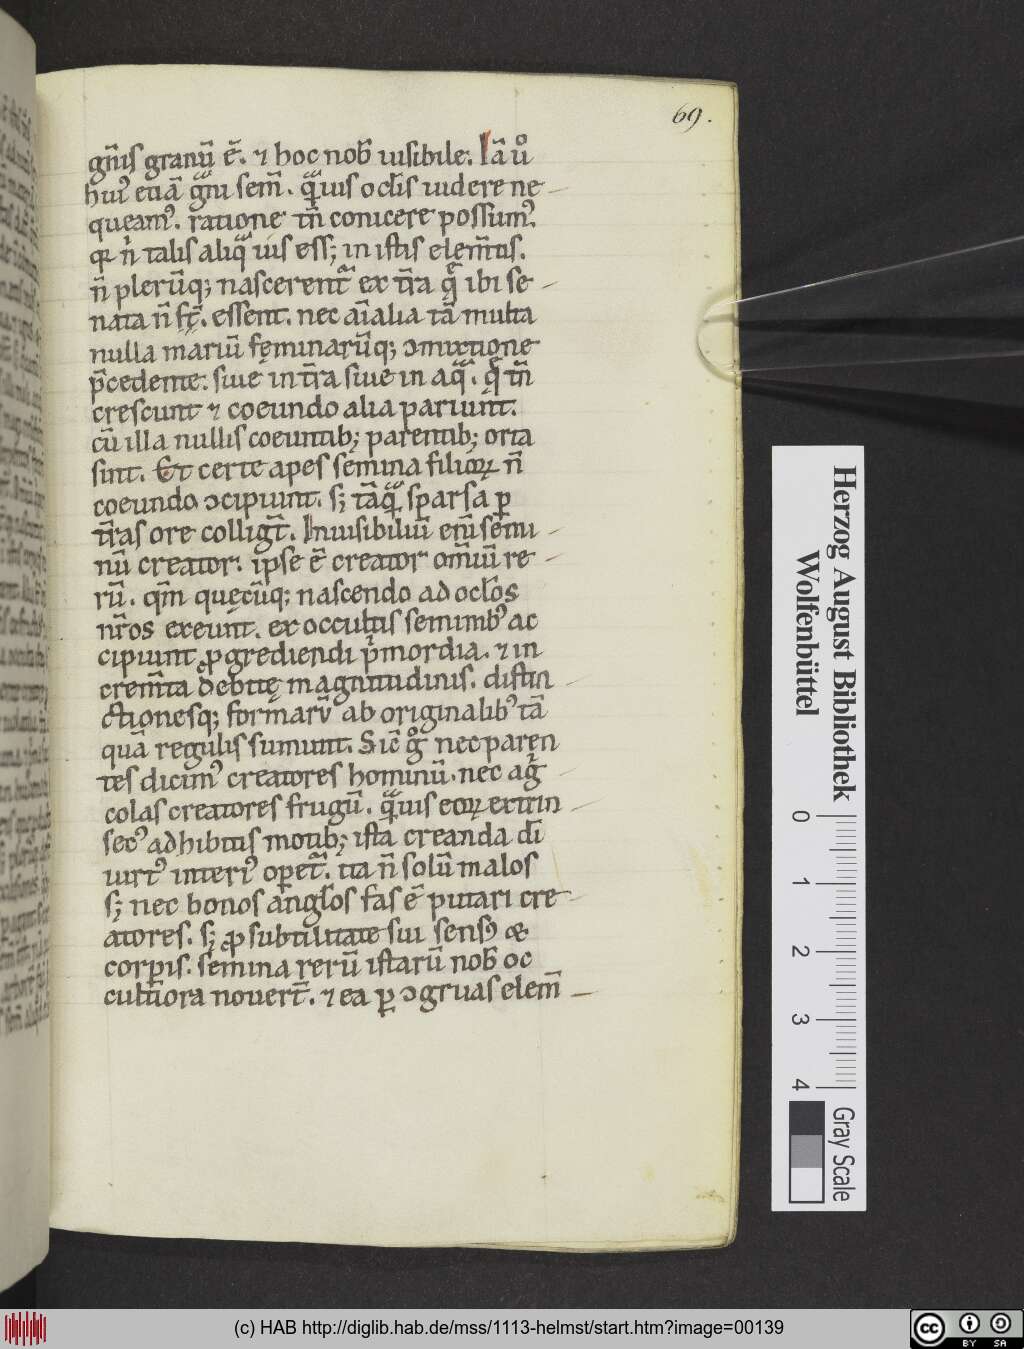 69.
gn̄is granū ē. ⁊ hoc nob̄ uisibile. Iā ů
hui᾽ etiā gͣni sem̄. qͣuis ocl̄is uidere ne
queam᾽. ratione tn̄ conicere possum᾽.
qꝛ n̄ talis aliqͣ uis ess; in istis elem̄tis.
n̄ plerūq; nascerentᷓ ex tr̄a qͤ ibi se
nata n̄ ſt̄. essent. nec aīalia tā multa
nulla mariū fęminarūq; ꝯmixtione
p̄cedente. siue in tr̄a siue in aqͣ. qͤ tn̄
crescunt ⁊ coeundo alia pariunt.
cū illa nullis coeuntib; parentib; orta
sint. Et certe apes semina filioꝝ n̄
coeundo ꝯcipiunt. s; tāqͣ sparsa ꝑ
tr̄as ore colligt̄. Inuisibiliū eni᷑ semi
nū creator. ipse ē creator om̄iū re
rū. qm̄ quęcūq; nascendo ad ocl̄os
nr̄os exeunt. ex occultis seminib᾽ ac
cipiunt ꝓgrediendi p̄mordia. ⁊ in
crem̄ta debitę magnitudinis. distin
ctionesq; formarū ab originalib᾽ tā
quā regulis sumunt. Sic̄ gͦ nec paren
tes dicim᾽ creatores hominū. nec agͥ
colas creatores frugū. qͣuis eoꝝ extrin
sec᾽ adhibitis motib; ista creanda dī
uirt᾽ interi᾽ operetᷓ. ita n̄ solū malos
s; nec bonos angl̄os fas ē putari cre
atores. s; ꝓ subtilitate sui sens᾽ &
corꝑis. semina rerū istarū nob̄ oc
cultiora nouert̄. ⁊ ea ꝑ ꝯgruas elem̄
Herzog August Bibliothek
Wolfenbüttel
0 1 2 3 4
Gray Scale
(c) HAB http://diglib.hab.de/mss/1113-helmst/start.htm?image=00139
cc BY SA